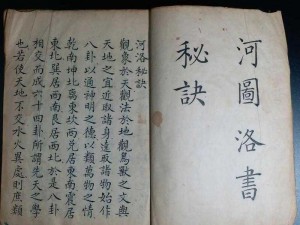 河圖洛書
秘訣
河洛秘訣
觀象於天觀法於地觀鳥獸之文與
天地之宜近取諸身遠取諸物始作
八卦以通神明之德以類萬物之情
乾南坤北离東坎西兌居東南震居
東北巽居西南艮居西北於是八卦
相交而成六十四卦所謂先天之學
也若使天地不交水火異處則庶類